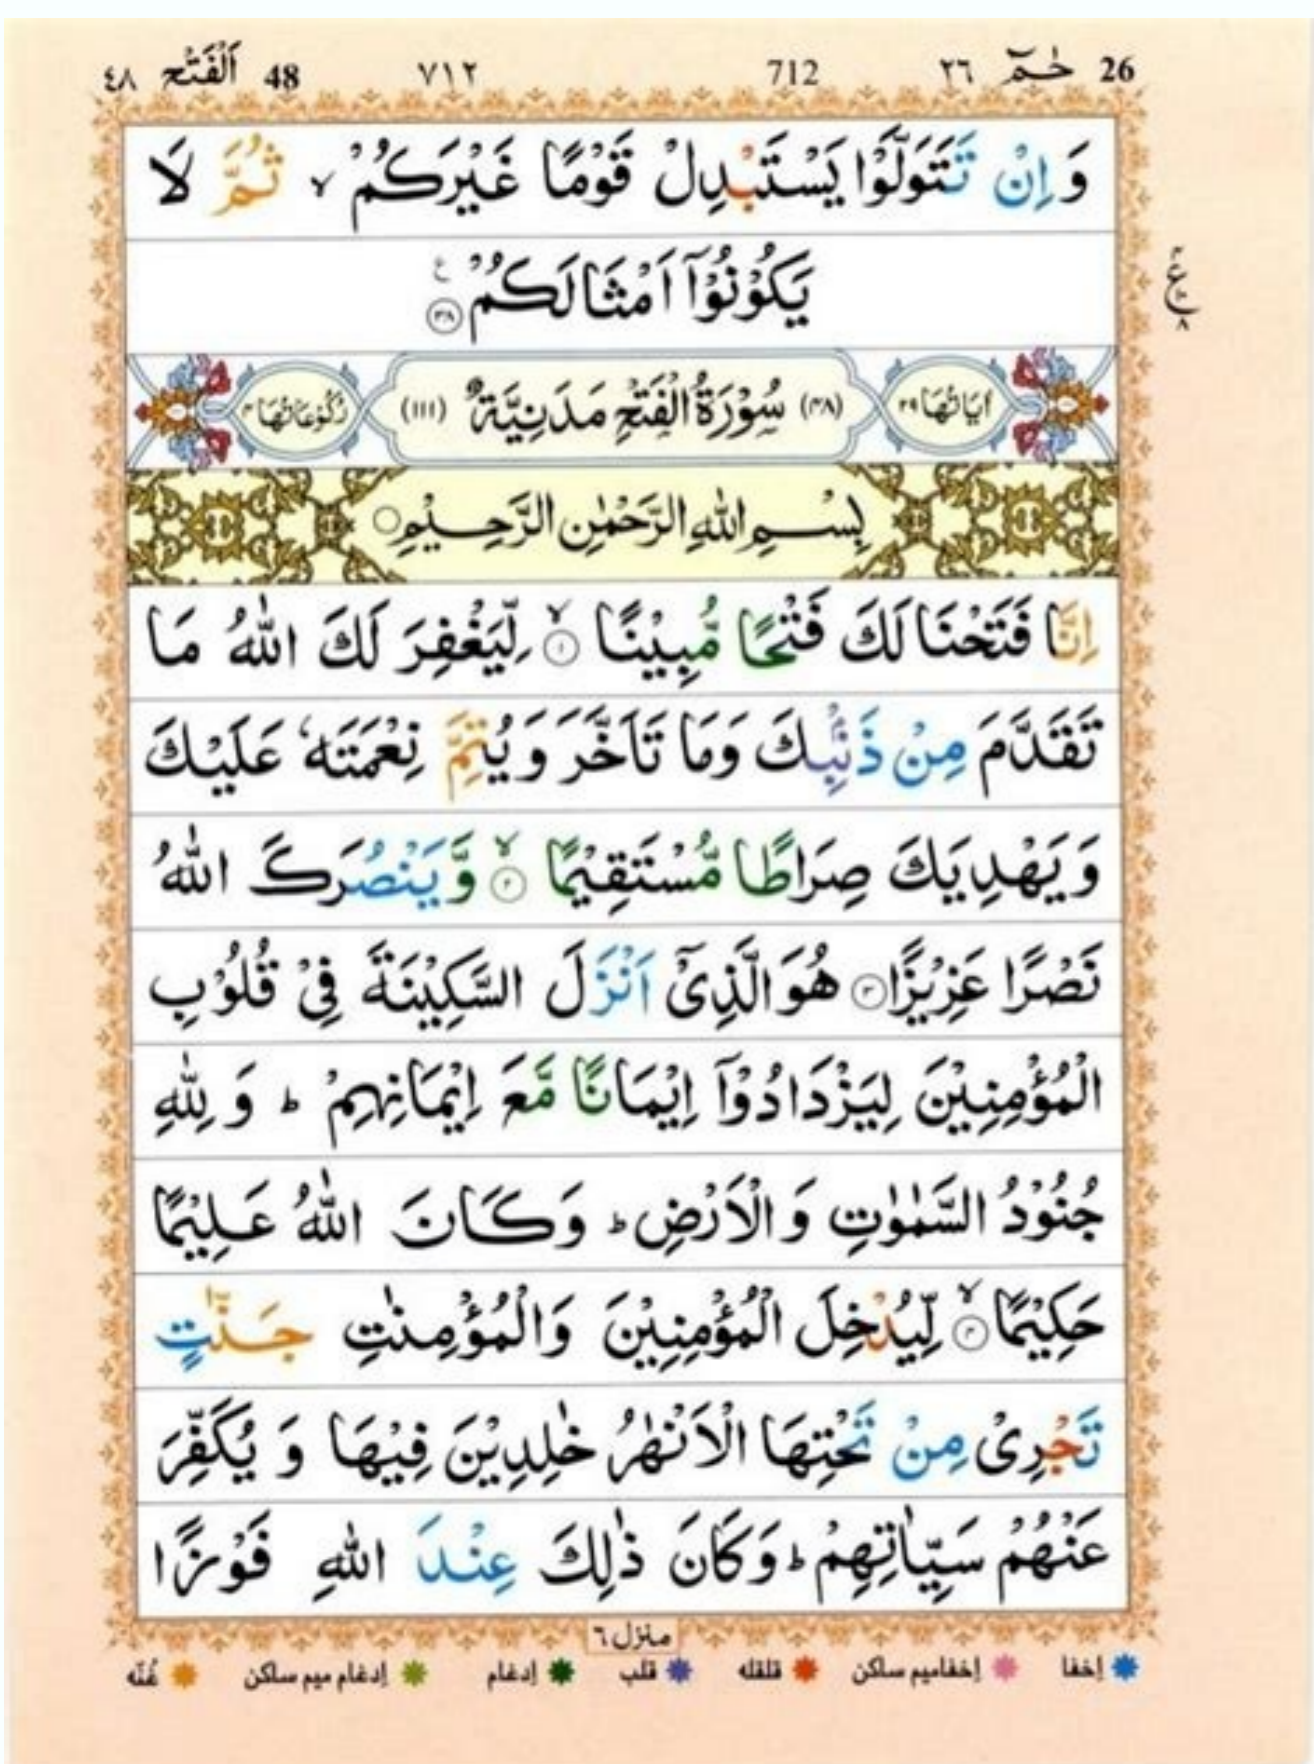 26 حٰمٓ ٢٦ 712 ٧١٢ 48 اَلْفَتْح ٤٨
وَ اِنْ تَتَوَلَّوْا يَسْتَبْدِلْ قَوْمًا غَيْرَكُمْ ۙ ثُمَّ لَا
يَكُوْنُوْۤا اَمْثَالَكُمْ ۳۸
ع ۸
اٰيَاتُهَا ۲۹ (۴۸) سُوْرَةُ الْفَتْحِ مَدَنِيَّةٌ (۱۱۱) رُكُوْعَاتُهَا ۴
بِسْمِ اللّٰهِ الرَّحْمٰنِ الرَّحِيْمِ
اِنَّا فَتَحْنَا لَكَ فَتْحًا مُّبِيْنًا ۙ ۱ لِّيَغْفِرَ لَكَ اللّٰهُ مَا
تَقَدَّمَ مِنْ ذَنْۢبِكَ وَمَا تَاَخَّرَ وَ يُتِمَّ نِعْمَتَهٗ عَلَيْكَ
وَ يَهْدِيَكَ صِرَاطًا مُّسْتَقِيْمًا ۙ ۲ وَّ يَنْصُرَكَ اللّٰهُ
نَصْرًا عَزِيْزًا ۳ هُوَ الَّذِيْۤ اَنْزَلَ السَّكِيْنَةَ فِيْ قُلُوْبِ
الْمُؤْمِنِيْنَ لِيَزْدَادُوْۤا اِيْمَانًا مَّعَ اِيْمَانِهِمْ ؕ وَ لِلّٰهِ
جُنُوْدُ السَّمٰوٰتِ وَ الْاَرْضِ ؕ وَ كَانَ اللّٰهُ عَلِيْمًا
حَكِيْمًا ۙ ۴ لِّيُدْخِلَ الْمُؤْمِنِيْنَ وَالْمُؤْمِنٰتِ جَنّٰتٍ
تَجْرِيْ مِنْ تَحْتِهَا الْاَنْهٰرُ خٰلِدِيْنَ فِيْهَا وَ يُكَفِّرَ
عَنْهُمْ سَيِّاٰتِهِمْ ؕ وَ كَانَ ذٰلِكَ عِنْدَ اللّٰهِ فَوْزًا
منزل ٦
إخفا إخفاميم ساكن قلقله قلب إدغام إدغام ميم ساكن غُنّه